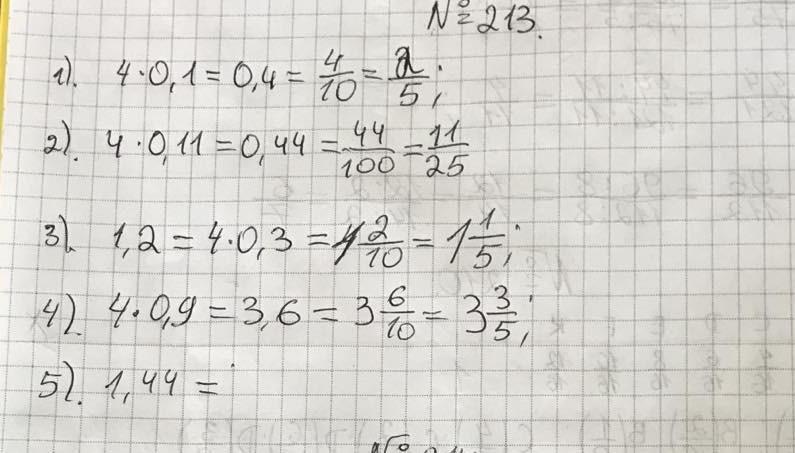 №213.
1). 4·0,1=0,4=4/10=2/5;
2). 4·0,11=0,44=44/100=11/25
3). 1,2=4·0,3=1 2/10=1 1/5;
4). 4·0,9=3,6=3 6/10=3 3/5;
5). 1,44=